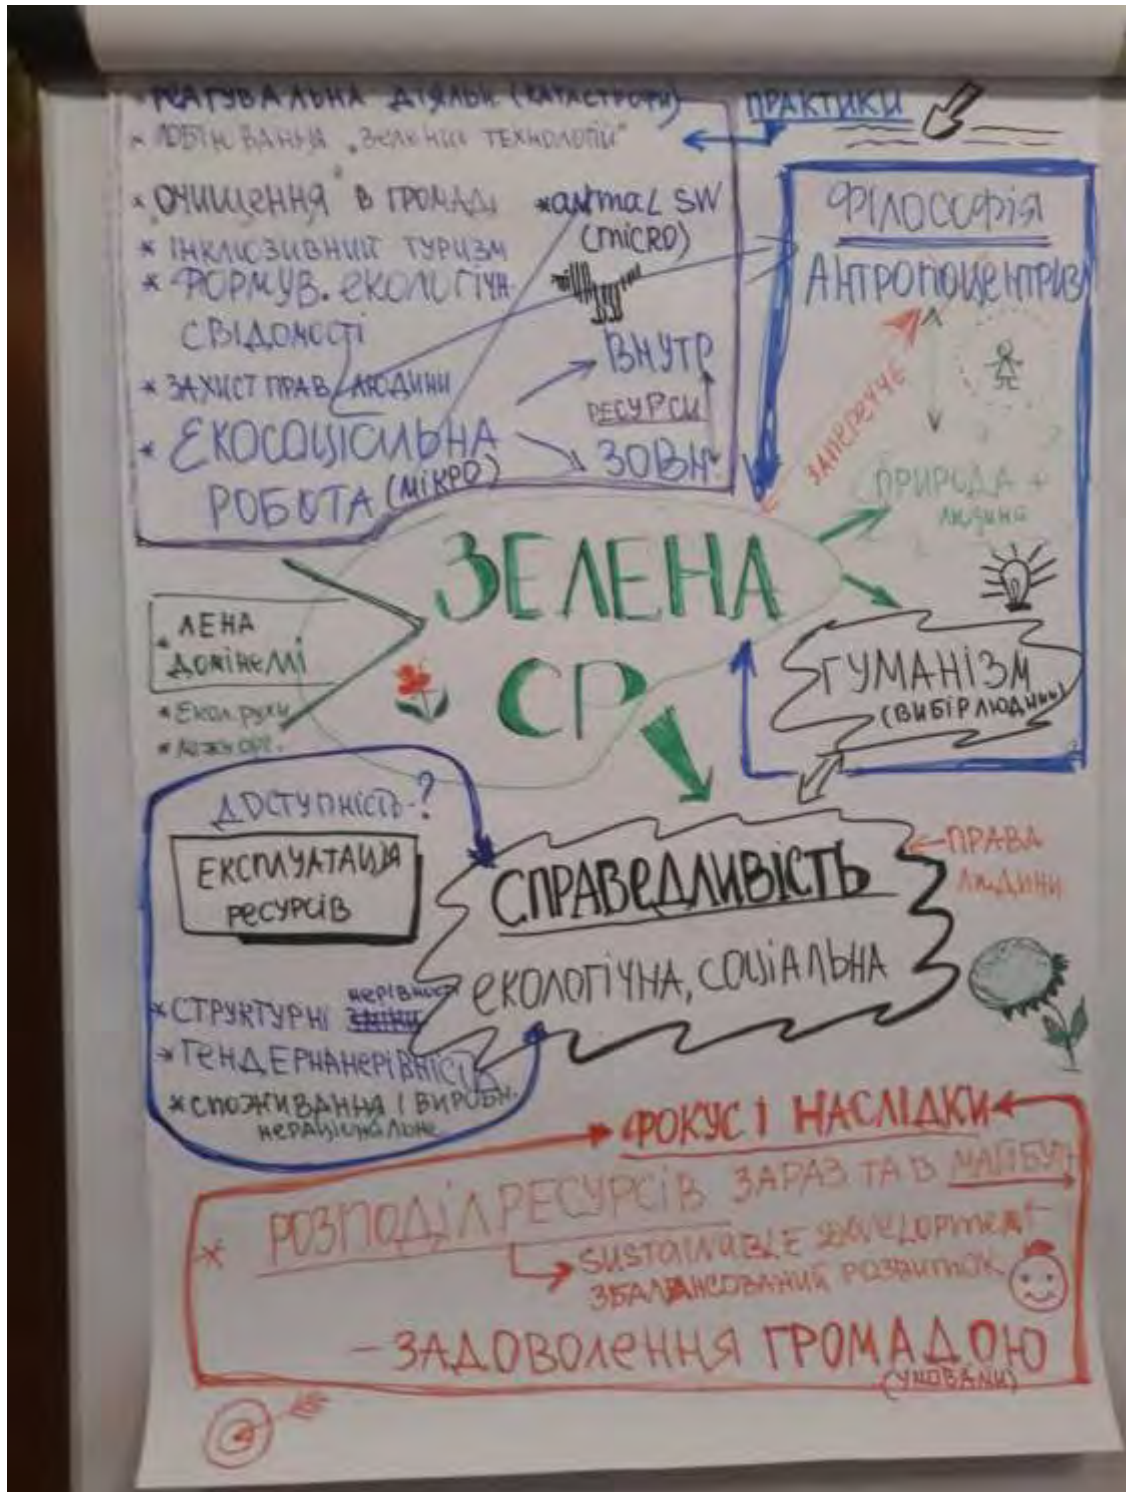 РЕАГУВАЛЬНА ДІЯЛЬН (КАТАСТРОФИ)
* ЛОБІЮВАННЯ „ЗЕЛЕНИХ ТЕХНОЛОГІЙ"
* „ОЧИЩЕННЯ" В ГРОМАДІ
* ІНКЛЮЗИВНИЙ ТУРИЗМ
* ФОРМУВ. ЕКОЛОГІЧН.
СВІДОМОСТІ
* ЗАХИСТ ПРАВ ЛЮДИНИ
* ЕКОСОЦІАЛЬНА
РОБОТА (МІКРО)
*animal SW
(micro)
ВНУТР
РЕСУРСИ
ЗОВН.
ПРАКТИКИ
ФІЛОСОФІЯ
АНТРОПОЦЕНТРИЗ
ЗАПЕРЕЧУЄ
ПРИРОДА +
людина
ГУМАНІЗМ
(ВИБІР ЛЮДИНИ)
ЗЕЛЕНА
СР
* ЛЕНА
ДОМІНЕЛЛІ
* Екол.рухи
ДОСТУПНІСТЬ-?
ЕКСПЛУАТАЦІЯ
РЕСУРСІВ
* СТРУКТУРНІ нерівності
* ГЕНДЕРНА НЕРІВНІСТЬ
* СПОЖИВАННЯ І ВИРОБН.
нераціональне
СПРАВЕДЛИВІСТЬ
ЕКОЛОГІЧНА, СОЦІАЛЬНА
ПРАВА
ЛЮДИНИ
ФОКУС І НАСЛІДКИ
* РОЗПОДІЛ РЕСУРСІВ ЗАРАЗ ТА В МАЙБУТ
SUSTAINABLE DEVELOPMENT
ЗБАЛАНСОВАНИЙ РОЗВИТОК
- ЗАДОВОЛЕННЯ ГРОМАДОЮ
(УМОВАМИ)